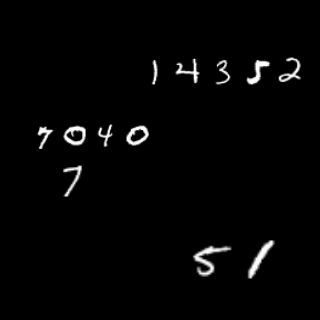 14352
7040
7
51